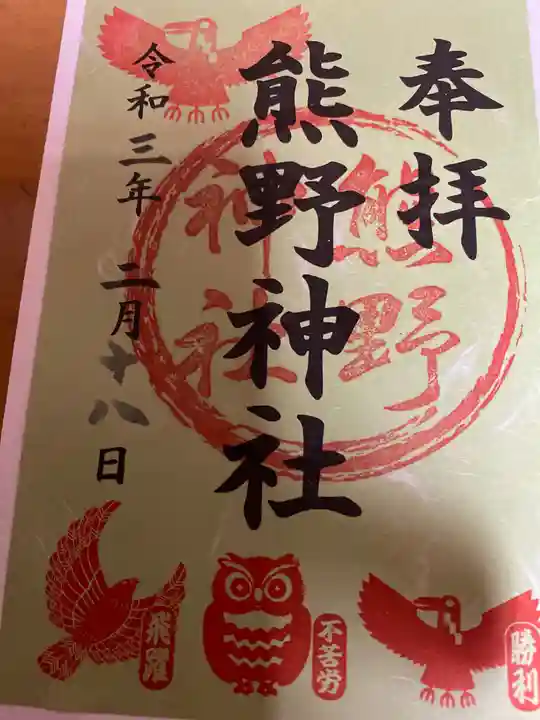 奉拝
熊野神社
熊野
神社
令和三年 二月十八日
飛躍
不苦労
勝利